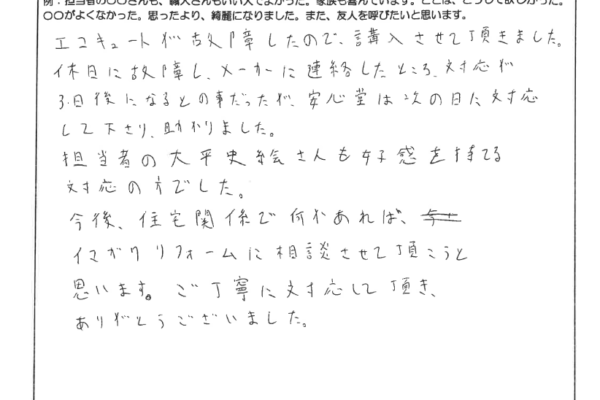 例：担当者の〇〇さんも、職人さんもいい人でよかった。家族も喜んでいます。ここは、こうして欲しかった。
〇〇がよくなかった。思ったより、綺麗になりました。また、友人を呼びたいと思います。
エコキュートが故障したので、購入させて頂きました。
休日に故障し、メーカーに連絡したところ、対応が
3日後になるとの事だったが、安心堂は次の日に対応
して下さり、助かりました。
担当者の大平史絵さんも好感を持てる
対応の方でした。
今後、住宅関係で何かあれば、
イマガワリフォームに相談させて頂こうと
思います。ご丁寧に対応して頂き、
ありがとうございました。